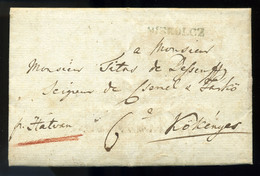 MISKOLCZ
a Monsieur
Monsieur Titus de Dessewffy
Seigneur de Csernel & Tarkö
pr. Hatvan
6
a
Kökényes